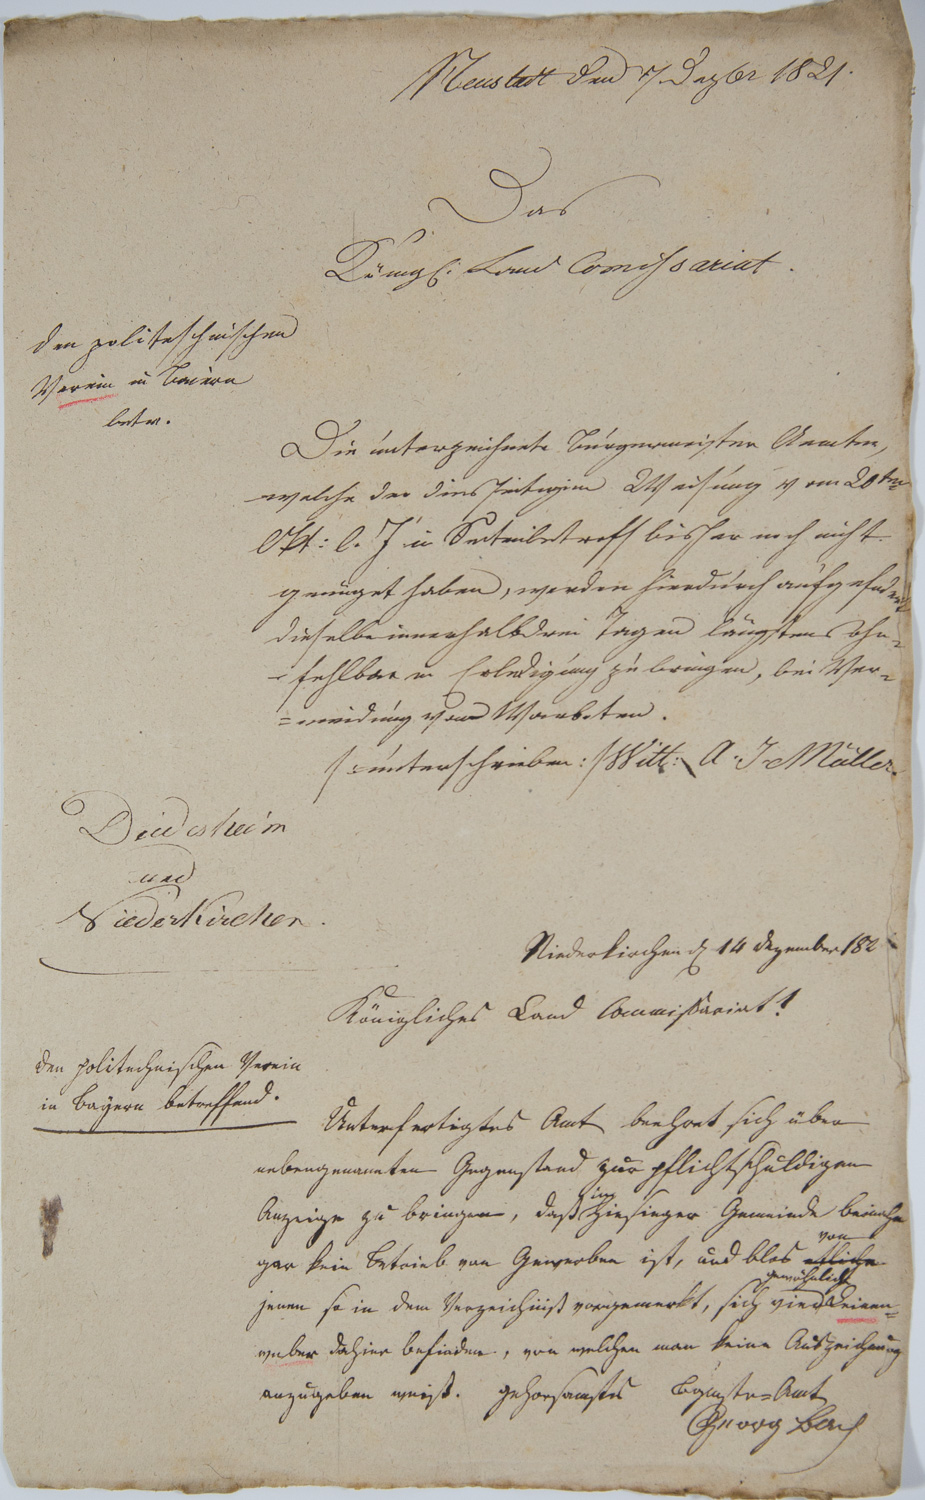 Neustadt den 7 Dezbr 1821.
Das
Königl: Land Comissariat.
den politechnischen
Verein in Baiern
betr.
Die unterzeichnete Bürgermeister Aemter,
welche der diesseitigen Weisung vom 20ten
Okt: l. J in Seitenbetreff bisher noch nicht
genüget haben, werden hierdurch aufgefodert
dieselbe innerhalb drei Tagen längstens ohn=
=fehlbar in Erledigung zu bringen, bei Ver=
=meidung von Warboten.
/:unterschrieben:/ Witt: A. J. Müller.
Deidesheim
und
Niederkirchen.
Niederkirchen d 14 Dezember 182
Königliches Land Commissariat!
Den politechnischen Verein
in Bayern betreffend.
Unterfertigtes Amt beehret sich über
nebengenannten Gegenstand zur pflichtschuldigen
Anzeige zu bringen, daß in hiesiger Gemeinde beinahe
gar kein Betrieb von Gewerben ist, und blos von
jenen so in dem Verzeichniß vorgemerkt, sich vier gewöhnliche Leinen=
weber dahier befinden, von welchen man keine Auszeichnung
anzugeben weiß. gehorsamstes Bgmstr=Amt
Georg